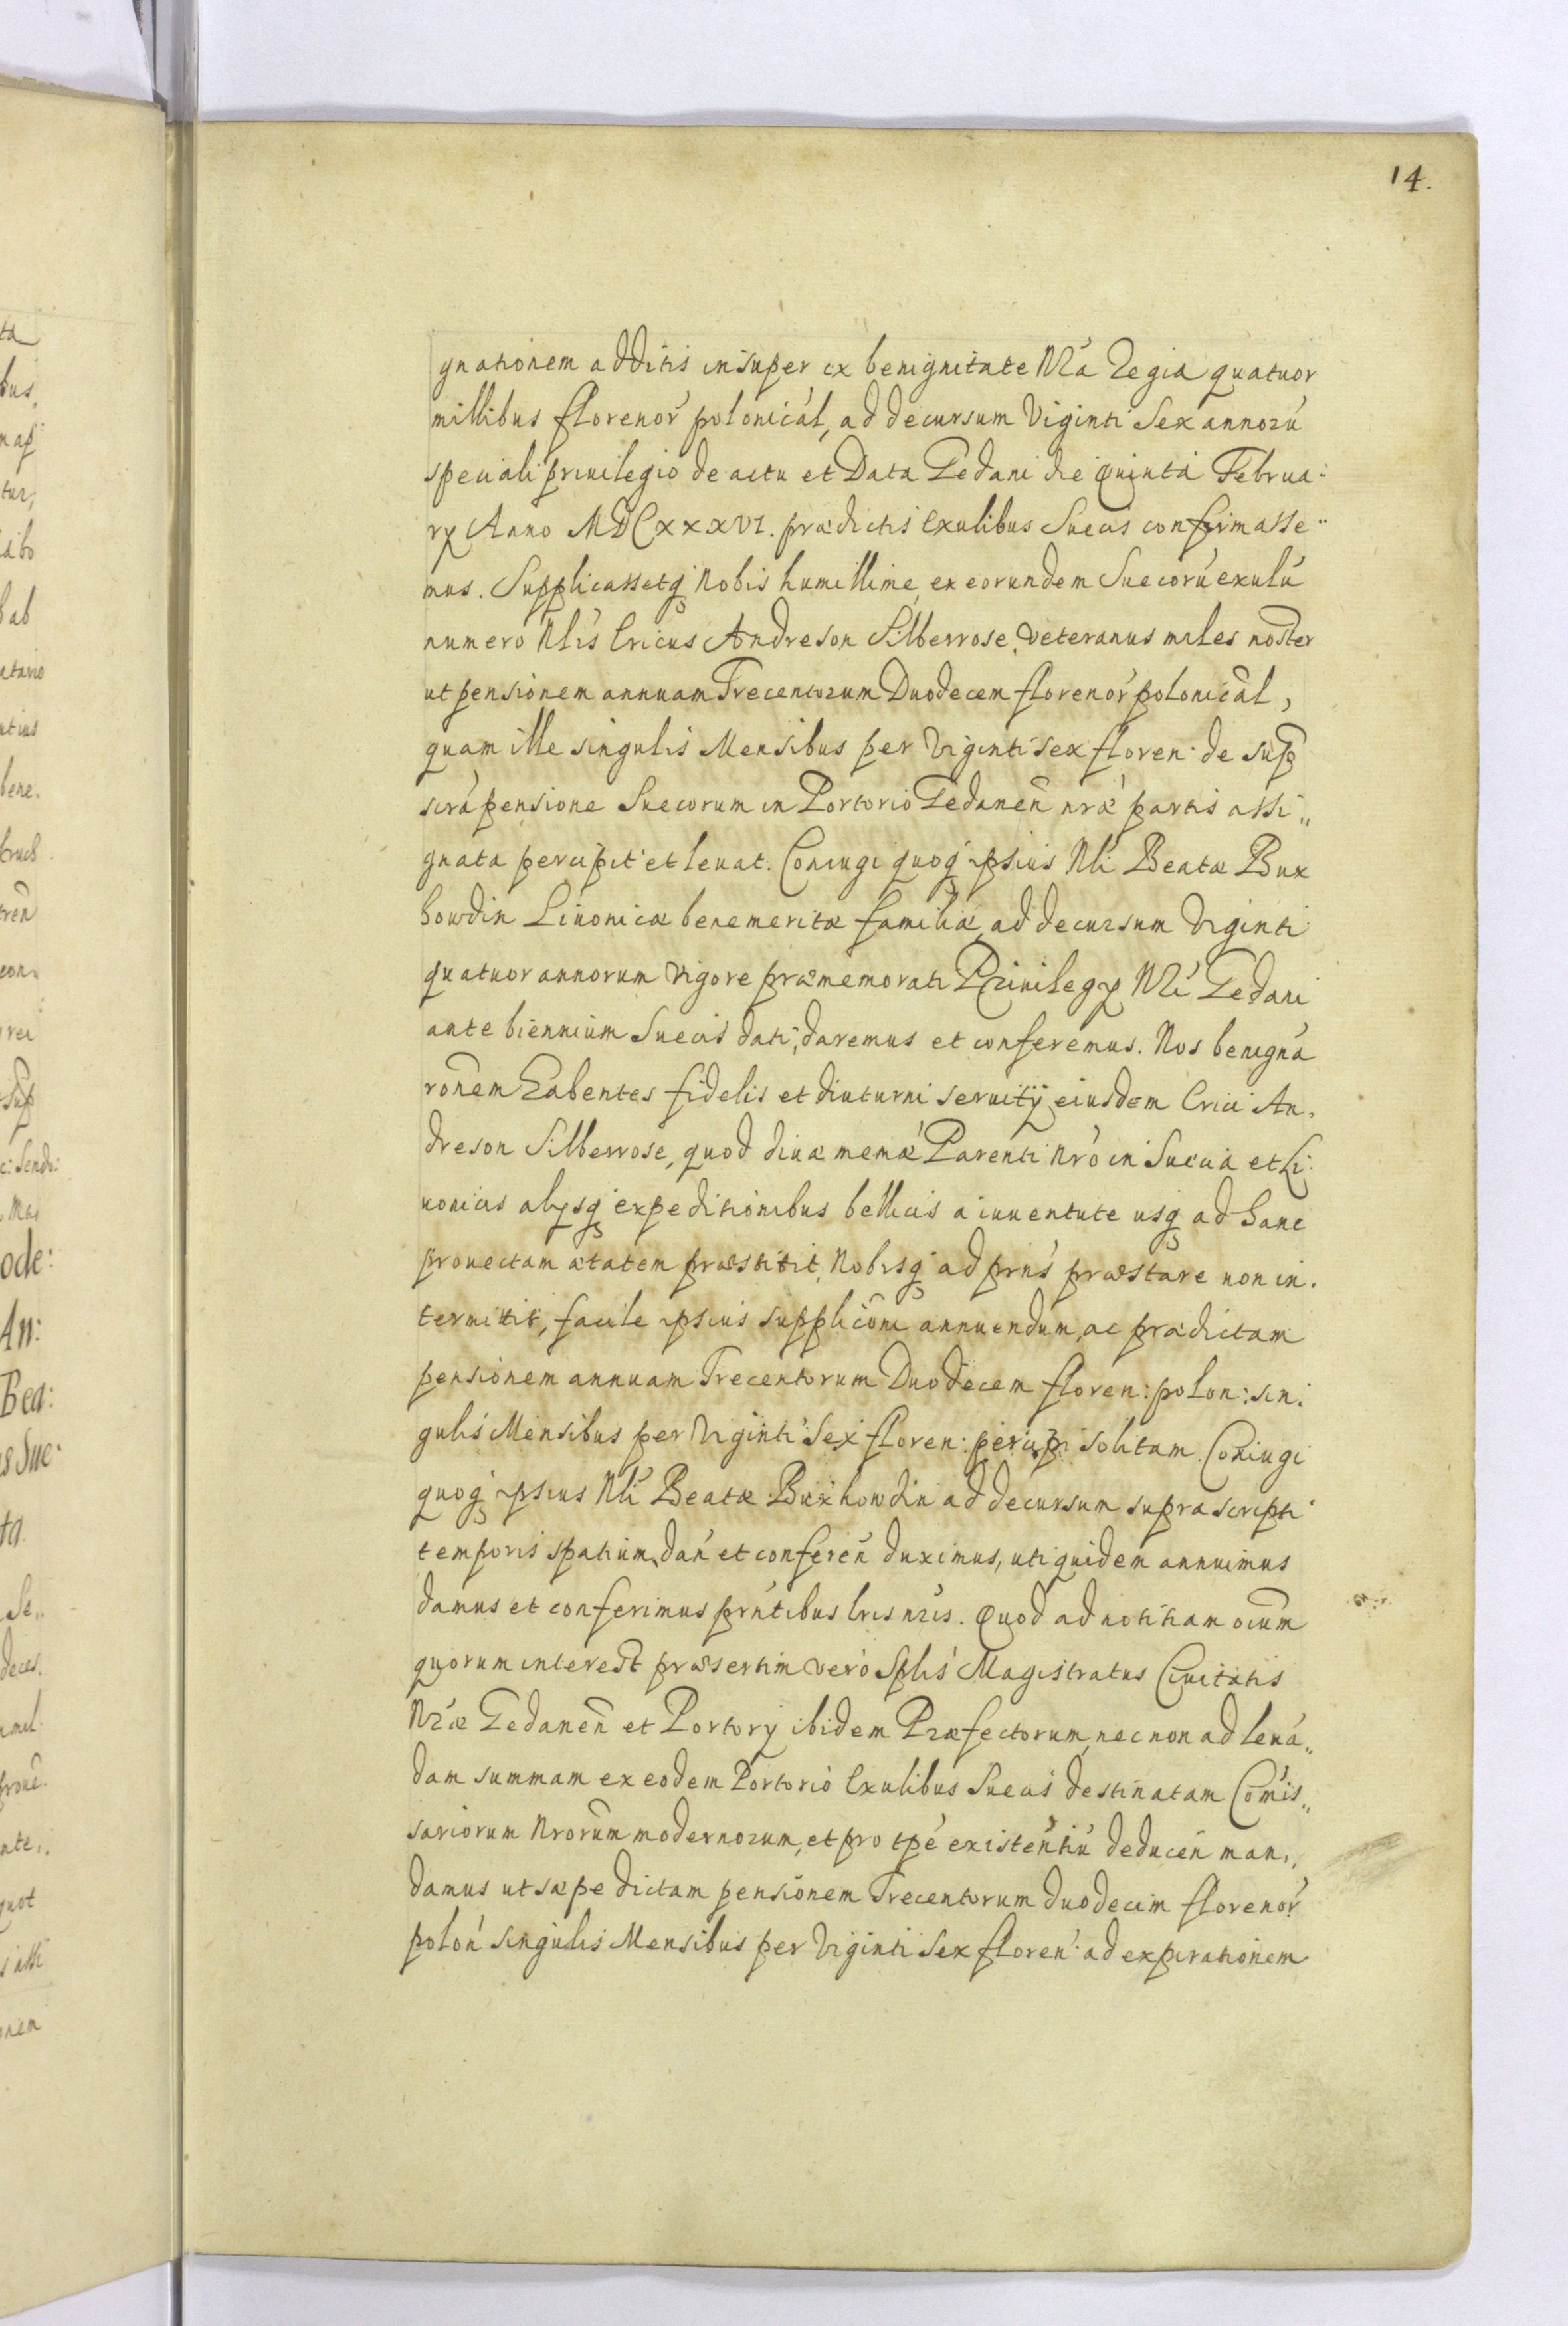 14.
gnationem additis insuper ex benignitate Nrá Regia quatuor
millibus florenor̓ polonicál, ad decursum Viginti Sex annorú
speciali priuilegio de actu et Data Gedani die Quintá Februa:
ry Anno MDCXXXVI. prædictis Exulibus Suecis confirmasse¨
mus. Supplicassetq́ Nobis humillime, ex eorundem Suecorú exulú
numero Nlis Ericus Andreson Silberrose, veteranus miles noster
ut pensionem annuam Trecentorum Duodecem florenor̓ polonicãl,
quam ille singulis Mensibus per Viginti sex floren: de sup̃
scrá pensione Suecorum in Portorio Gedaneñ nræ partis assi„
gnata percipit et leuat. Coniugi quoq́ ipsius Nli Beatæ Bux
howdin Liuonicæ benemeritæ familiæ, ad decursum Viginti
quatuor annorum vigore præmemorati Priuilegy Nri Gedani
ante biennium Suecis dati, daremus et conferemus. Nos benigná
ronem habentes fidelis et diuturni seruitij eiusdem Erici An„
dreson Silberrose, quod diuæ memæ Parenti Nró in Suecia et Li:
uonicis alysq́ expeditionibus bellicis a iuuentute usq́ ad hanc
prouectam ætatem præstitit, Nobisq́ ad prńs præstare non in.
termittit, facile ipsius supplicõni annuendum, ac prædictam
pensionem annuam Trecentorum Duodecem floren: polon: sin:
gulis Mensibus per Viginti Sex floren: percipi solitam. Coniugi
quoq́ ipsius Nli Beatæ Buxhowdin ad decursum suprascripti
temporis spatium, dań et confereñ duximus, uti quidem annuimus
damus et conferimus prńtibus lris nris. Quod ad notitiam oium̃
quorum interest præsertim veró Splis Magistratus Ciuitatis
Nræ Gedaneñ et Portory ibidem Præfectorum, nec non ad leuá„
dam summam ex eodem Portorio Exulibus Suecis destinatam Comis„
sariorum Nrorum modernorum, et pro tpé existentiú deduceń man„
damus ut sæpe dictam pensionem Trecentorum duodecim florenor̓
polón singulis Mensibus per Viginti Sex floreń: ad expirationem